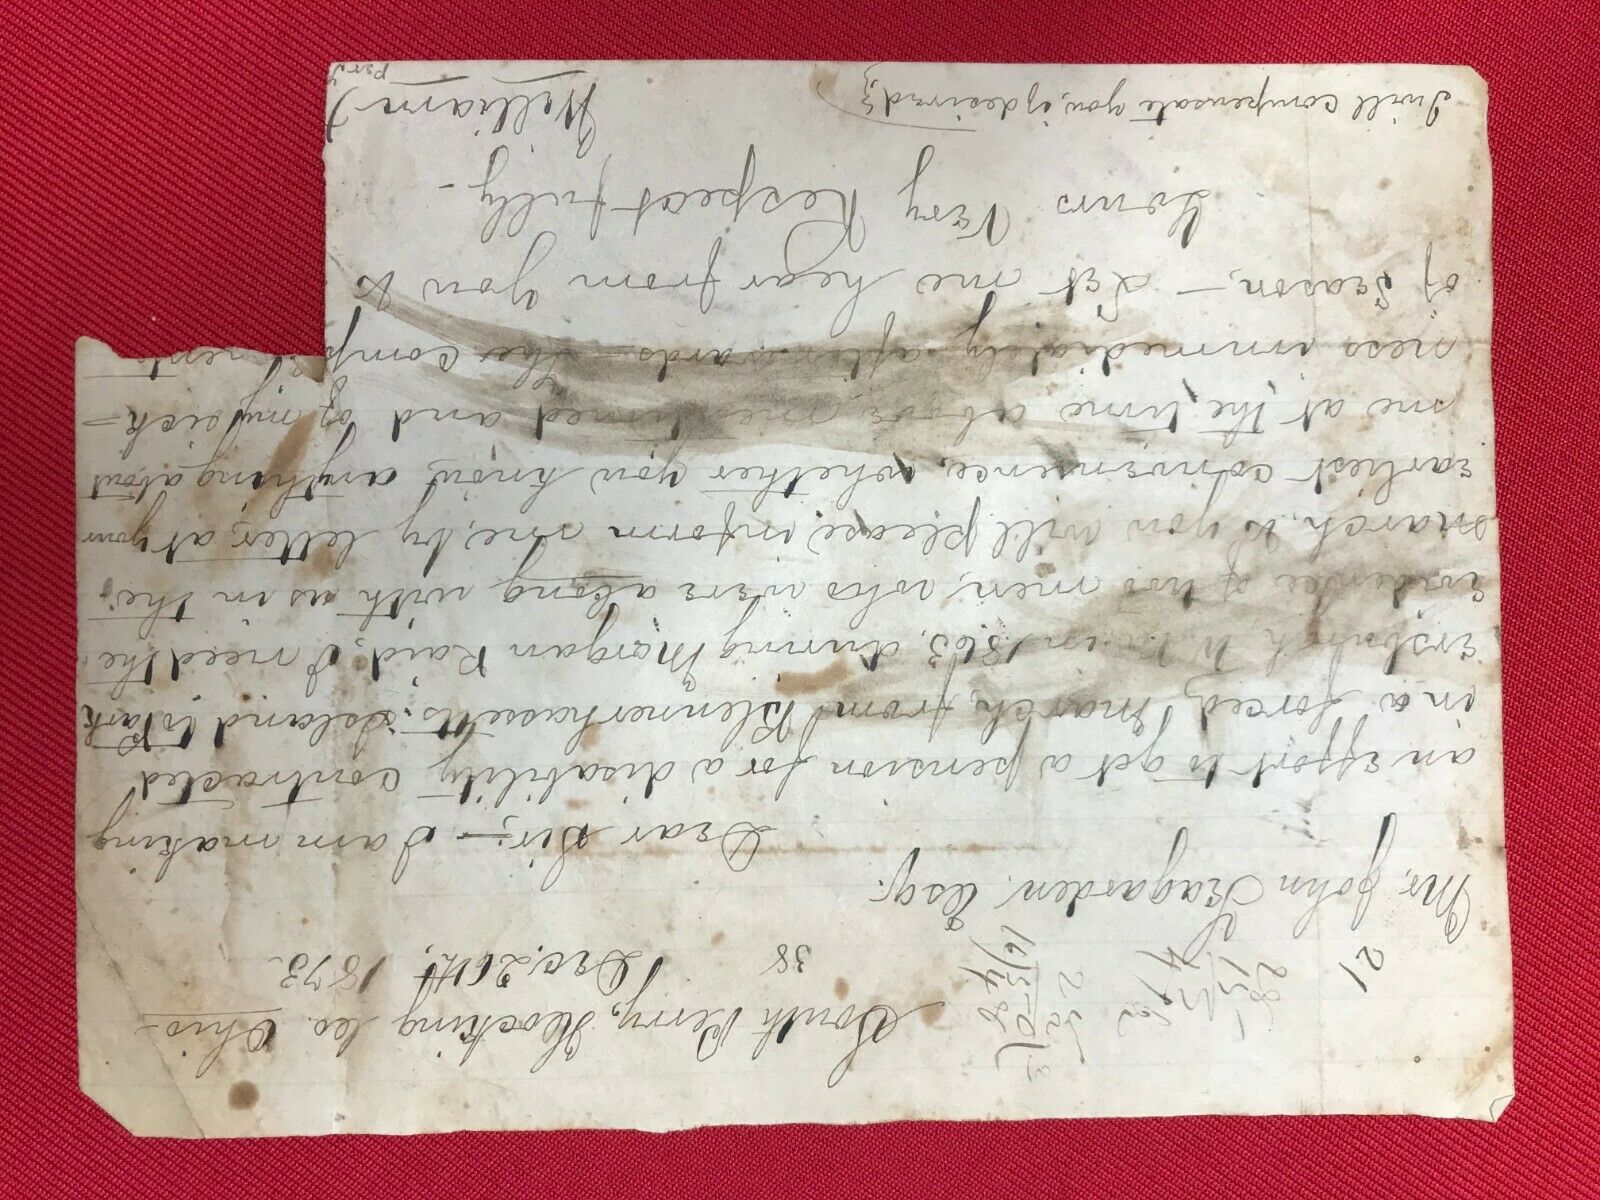 South Perry, Hocking Co. Ohio—
Dec. 26th, 1873.
38
21
Mr. John Teagarden, Esq.
Dear Sir;— I am making
an effort to get a pension for a disability contracted
in a forced march, from Blennerhassetts Island to Park
ersburgh, W. Va. in 1863, during Morgan Raid, I need the
evidence of two men, who were along with us in the
march, & you will please, inform me, by letter, at your
earliest convenience, whether you know anything about
me at the time above mentioned and of my sick—
ness immediately afterwards— the comp
of Season,— Let me hear from you
Yours Very Respectfully—
William
I will compensate you, if desired
per